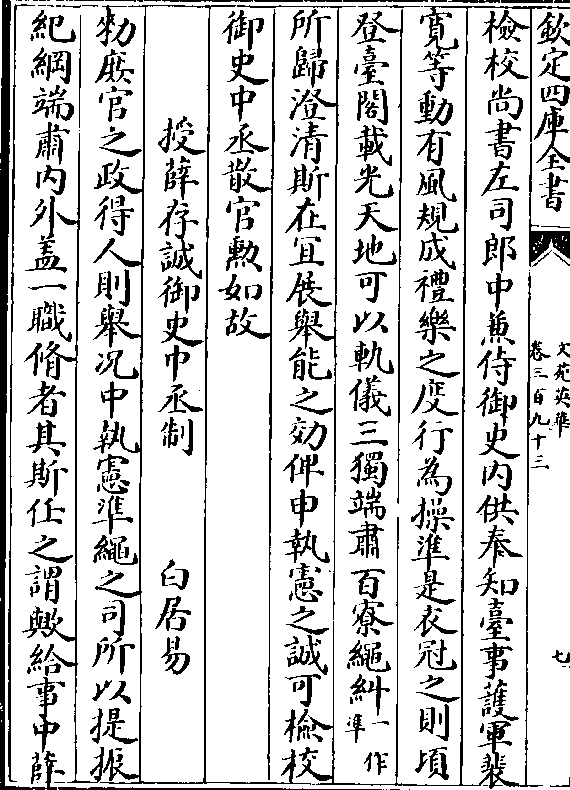 欽定四庫全書
文苑英華
卷三百九十三
七
檢校尚書左司郎中兼侍御史内供奉知臺事護軍裴
寛等動有風規成禮樂之度行為操準是衣冠之則頃
登臺閣載光天地可以軌儀三獨端肅百寮繩糾一作準
所歸澄清斯在宜展舉能之効俾申執憲之誠可檢校
御史中丞散官勲如故
授薛存誠御史中丞制　白居易
勑庶官之政得人則舉况中執憲準繩之司所以提振
紀綱端肅内外盖一職脩者其斯任之謂歟給事中薛